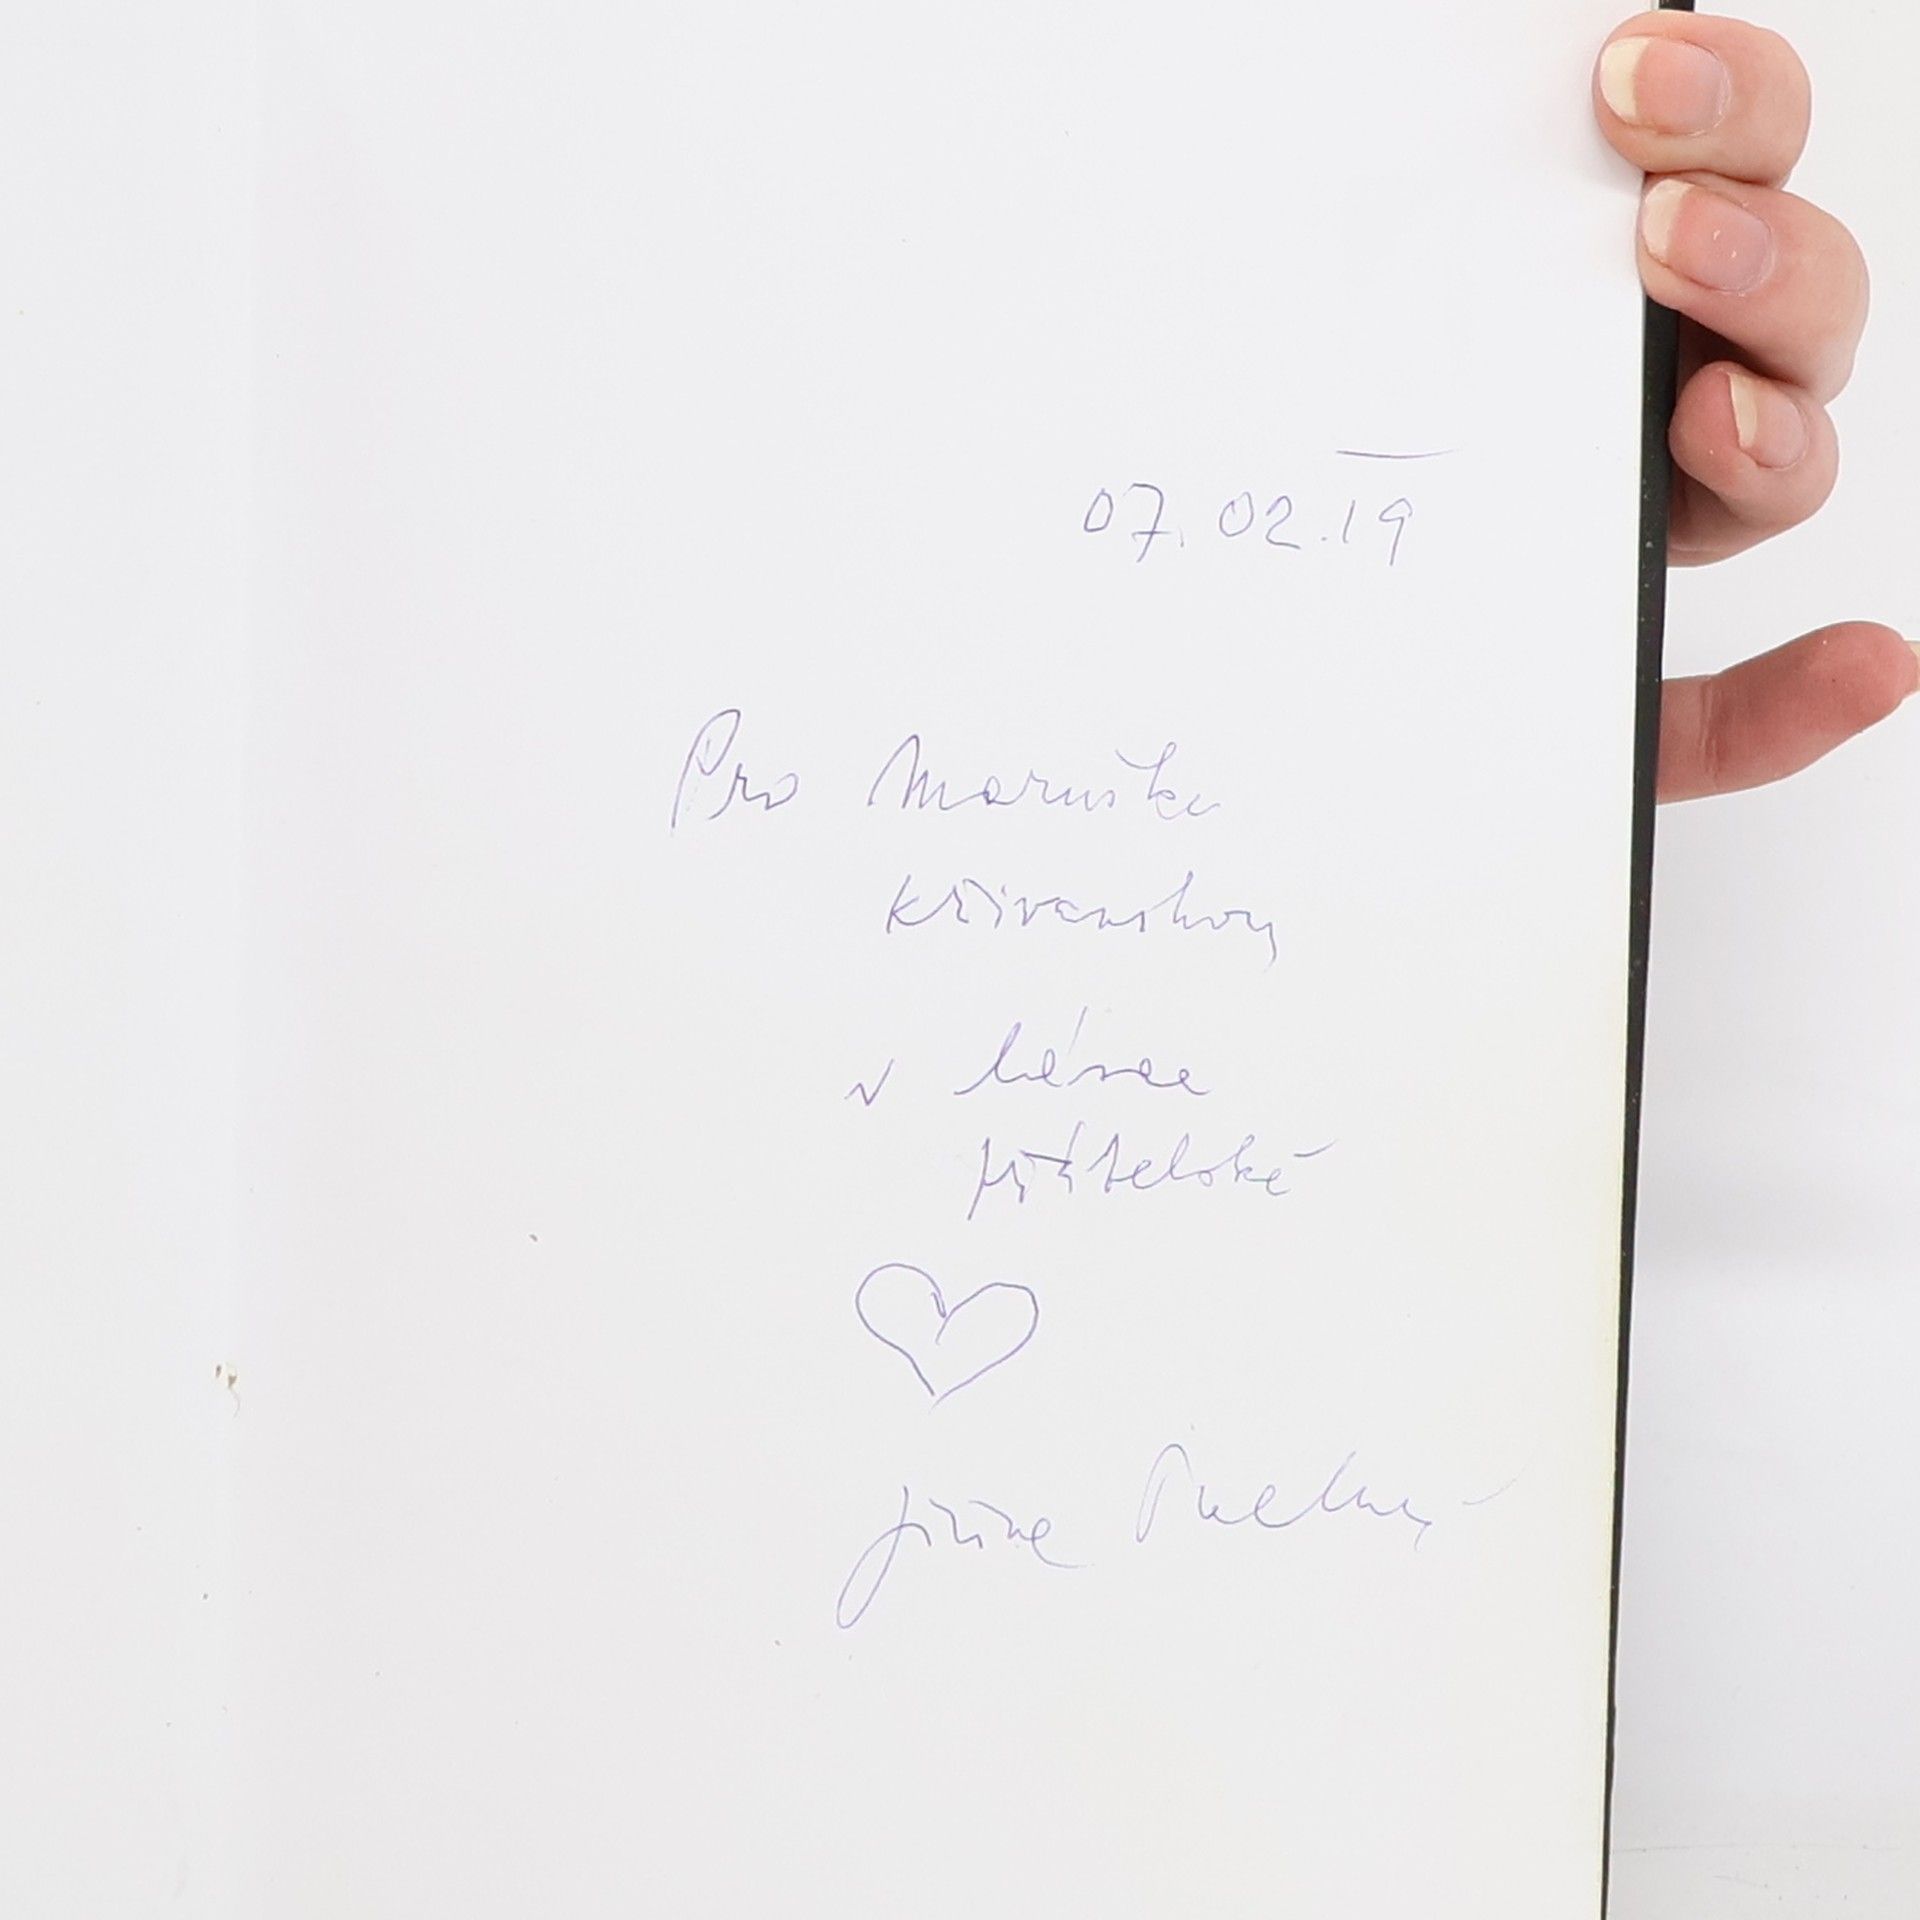 07.02.19
Pro Marušku
Křivánkovou
v lásce
přátelské
Jiřina